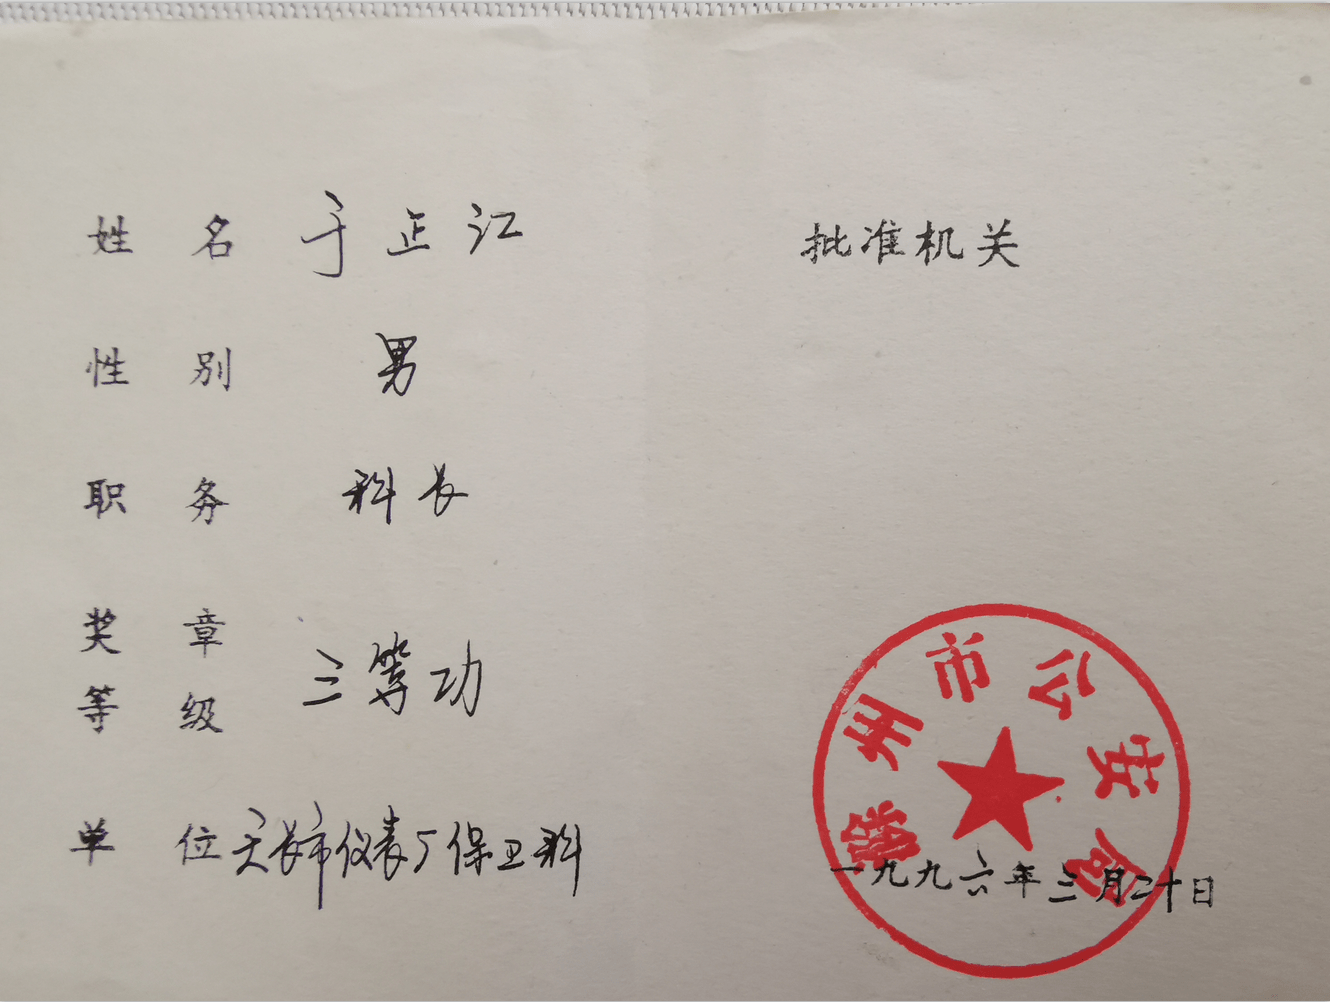 姓名 于正江
性别 男
职务 科长
奖章
等级 三等功
单位 天长市仪表厂保卫科
批准机关
滁州市公安局
一九九六年三月二十日